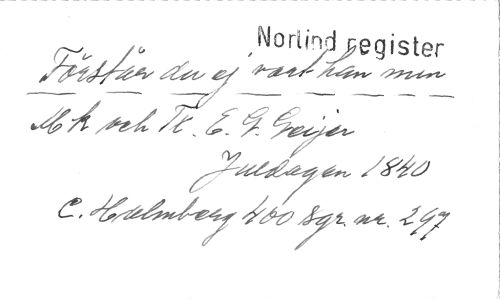 Norlind register
Förstår du ej vart han min
Mk och Tx. E. G. Geijer
Juldagen 1840
C. Holmberg 400 sgr. nr. 297